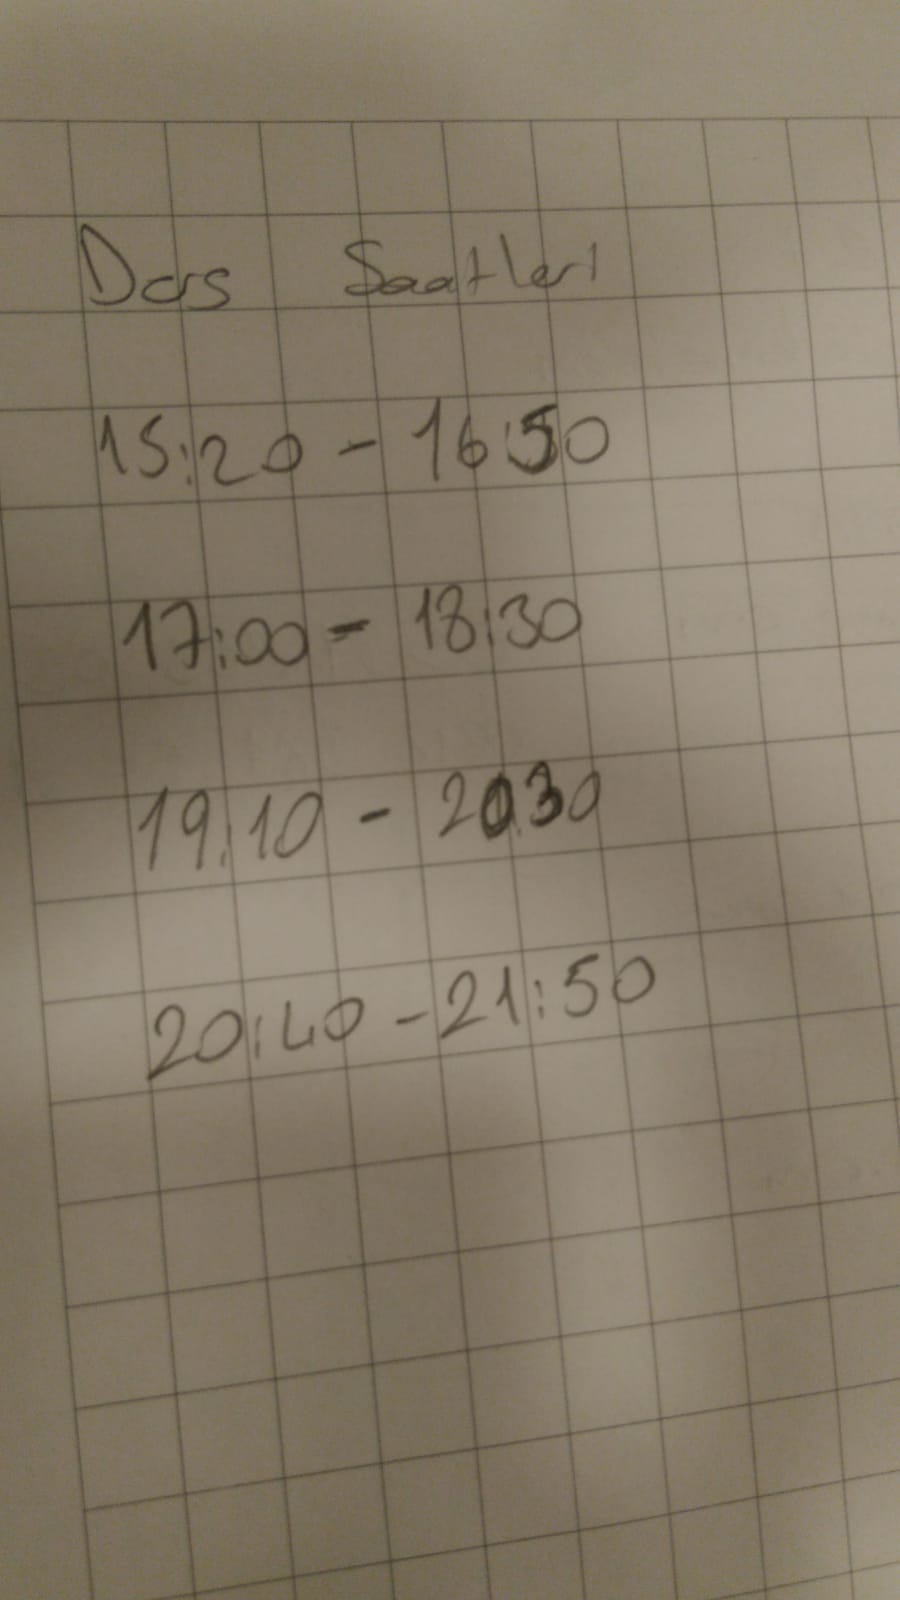 Ders Saatleri
15:20 - 16:50
17:00 - 18:30
19:10 - 20:30
20:40 - 21:50